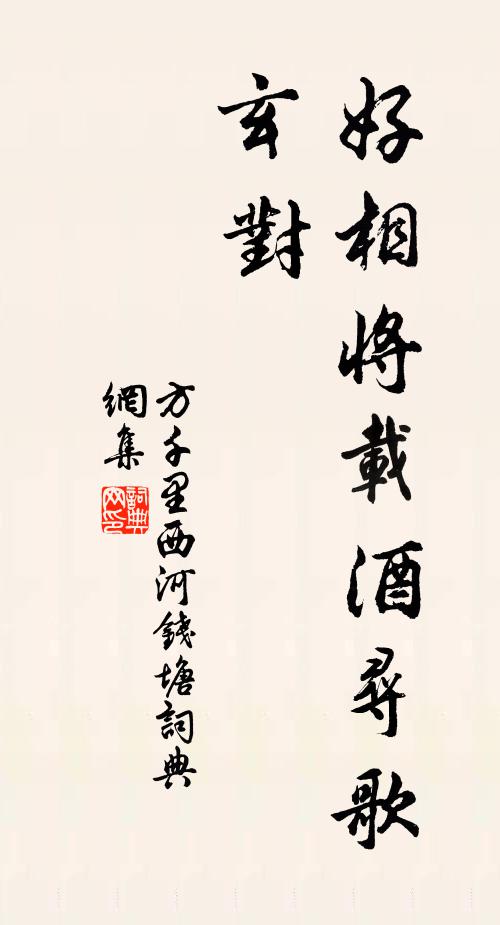 好相將載酒尋歌
玄對
方千里西河錢塘詞典
網集
詞典
网印